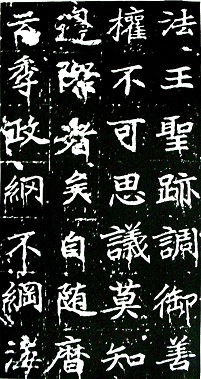 法王聖跡調御善
權不可思議莫知
邊際者矣自随暦
告季政網不綱海